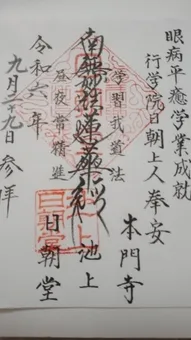 眼病平癒学業成就
行学院日朝上人奉安
本門寺
池上
日朝堂
学習我道法
南無妙法蓮華経
昼夜常精進
令和六年
九月二九日参拝